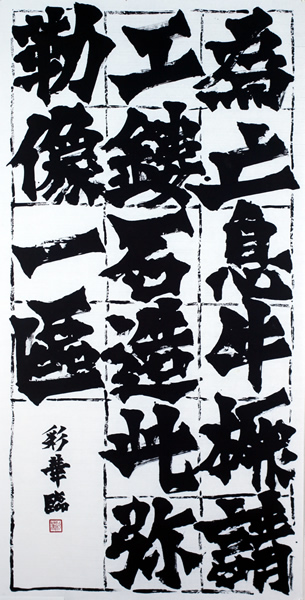 為亡息牛橛請
工鏤石造此弥
勒像一區
彩華臨